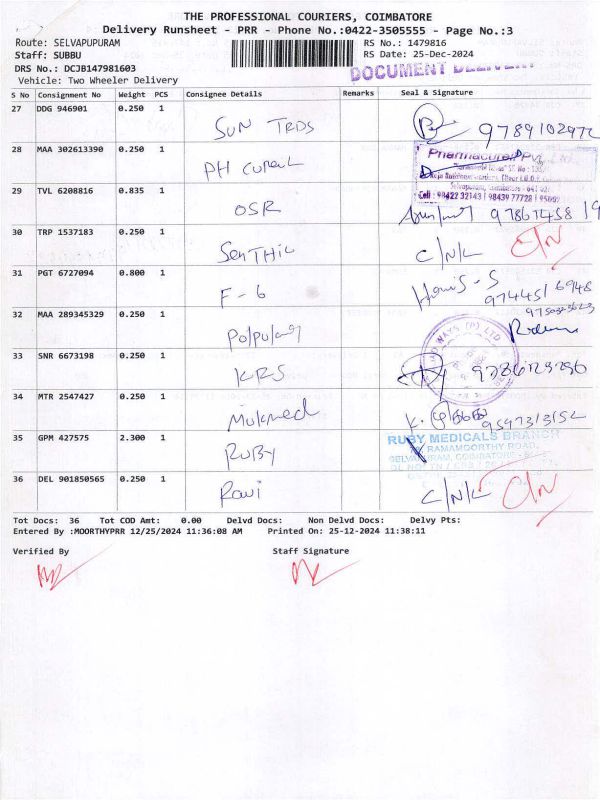 THE PROFESSIONAL COURIERS, COIMBATORE
Delivery Runsheet - PRR - Phone No.:0422-3505555 - Page No.:3
Route: SELVAPUPURAM
RS No.: 1479816
Staff: SUBBU
RS Date: 25-Dec-2024
DRS No.: DCJB147981603
DOCUMENT DELIVERY
Vehicle: Two Wheeler Delivery
S No Consignment No Weight PCS Consignee Details Remarks Seal & Signature
27 DDG 946901 0.250 1
SUN TRDS 9789102972
28 MAA 302613390 0.250 1
PH cural
29 TVL 6208816 0.835 1
Cell : 98422 32143 | 98439 77728
OSR
30 TRP 1537183 0.250 1
SenTHIL C/N/L C/N
31 PGT 6727094 0.800 1
F-6 Haris-S
9744516948
32 MAA 289345329 0.250 1
WAYS (P) LTD
33 SNR 6673198 0.250 1
KRS
34 MTR 2547427 0.250 1
35 GPM 427575 2.300 1
RUBY MEDICALS BRANCH
RAMAMOORTHY ROAD,
SELVAPURAM, COIMBATORE
RUBY
36 DEL 901850565 0.250 1
Ravi C/N/L C/N
Tot Docs: 36 Tot COD Amt: 0.00 Delvd Docs: Non Delvd Docs: Delvy Pts:
Entered By :MOORTHYPRR 12/25/2024 11:36:08 AM Printed On: 25-12-2024 11:38:11
Verified By Staff Signature